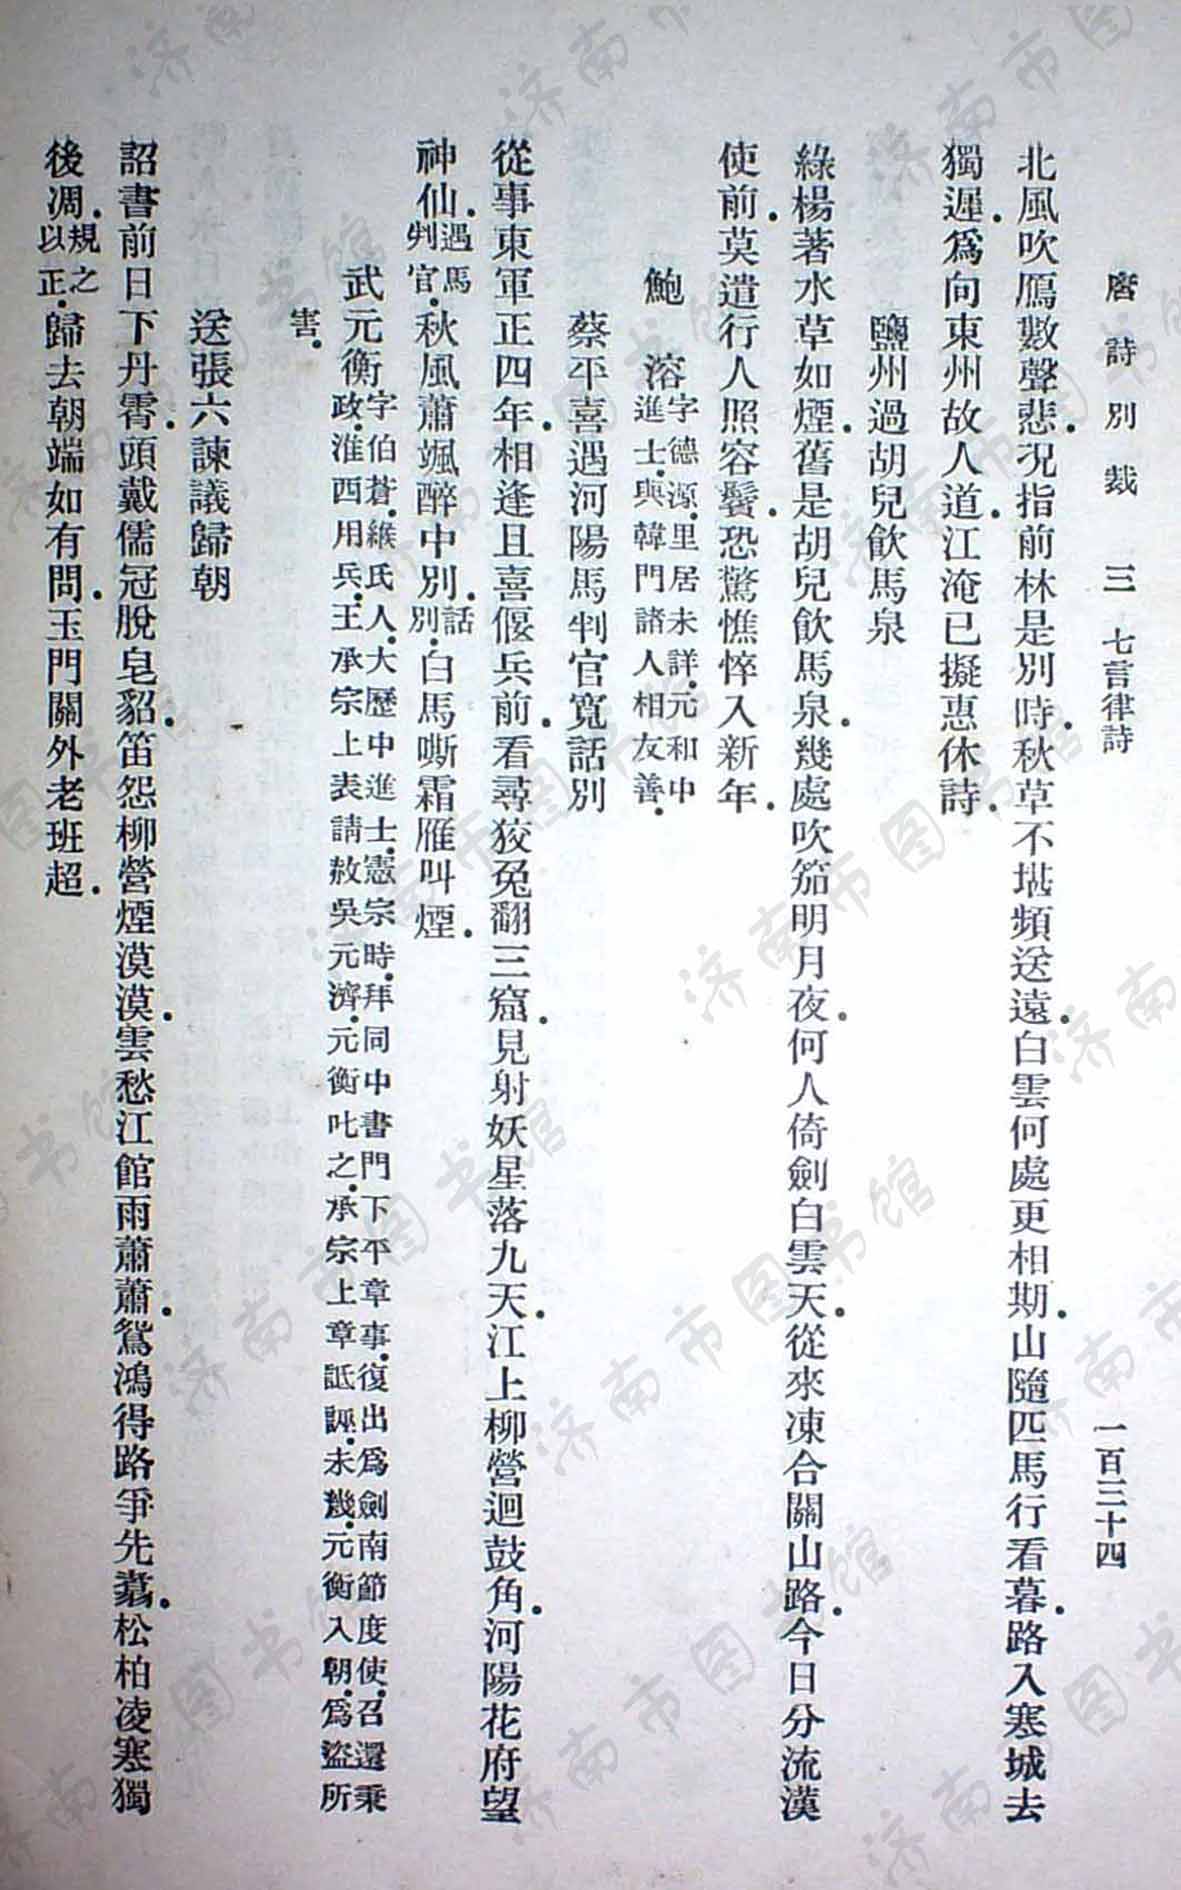 唐詩別裁　三　七言律詩　一百三十四
北風吹鴈數聲悲.況指前林是別時.秋草不堪頻送遠.白雲何處更相期.山隨匹馬行看暮.路入寒城去
獨遲.爲向東州故人道.江淹已擬惠休詩.
鹽州過胡兒飲馬泉
綠楊著水草如煙.舊是胡兒飲馬泉.幾處吹笳明月夜.何人倚劍白雲天.從來凍合關山路.今日分流漢
使前.莫遣行人照容鬢.恐驚憔悴入新年.
鮑　溶 字德源.里居未詳.元和中進士.與韓門諸人相友善.
蔡平喜遇河陽馬判官寬話別
從事東軍正四年.相逢且喜偃兵前.看尋狡兔翻三窟.見射妖星落九天.江上柳營迴鼓角.河陽花府望
神仙.遇馬判官.秋風蕭颯醉中別.話別.白馬嘶霜雁叫煙.
武元衡 字伯蒼.緱氏人.大歷中進士.憲宗時.拜同中書門下平章事.復出爲劍南節度使.召還秉
政.淮西用兵.王承宗上表請赦吳元濟.元衡叱之.承宗上章詆誣.未幾.元衡入朝.爲盜所
害.
送張六諫議歸朝
詔書前日下丹霄.頭戴儒冠脫皂貂.笛怨柳營煙漠漠.雲愁江館雨蕭蕭.鴛鴻得路爭先翥.松柏凌寒獨
後凋.規之以正.歸去朝端如有問.玉門關外老班超.
济南市图书馆